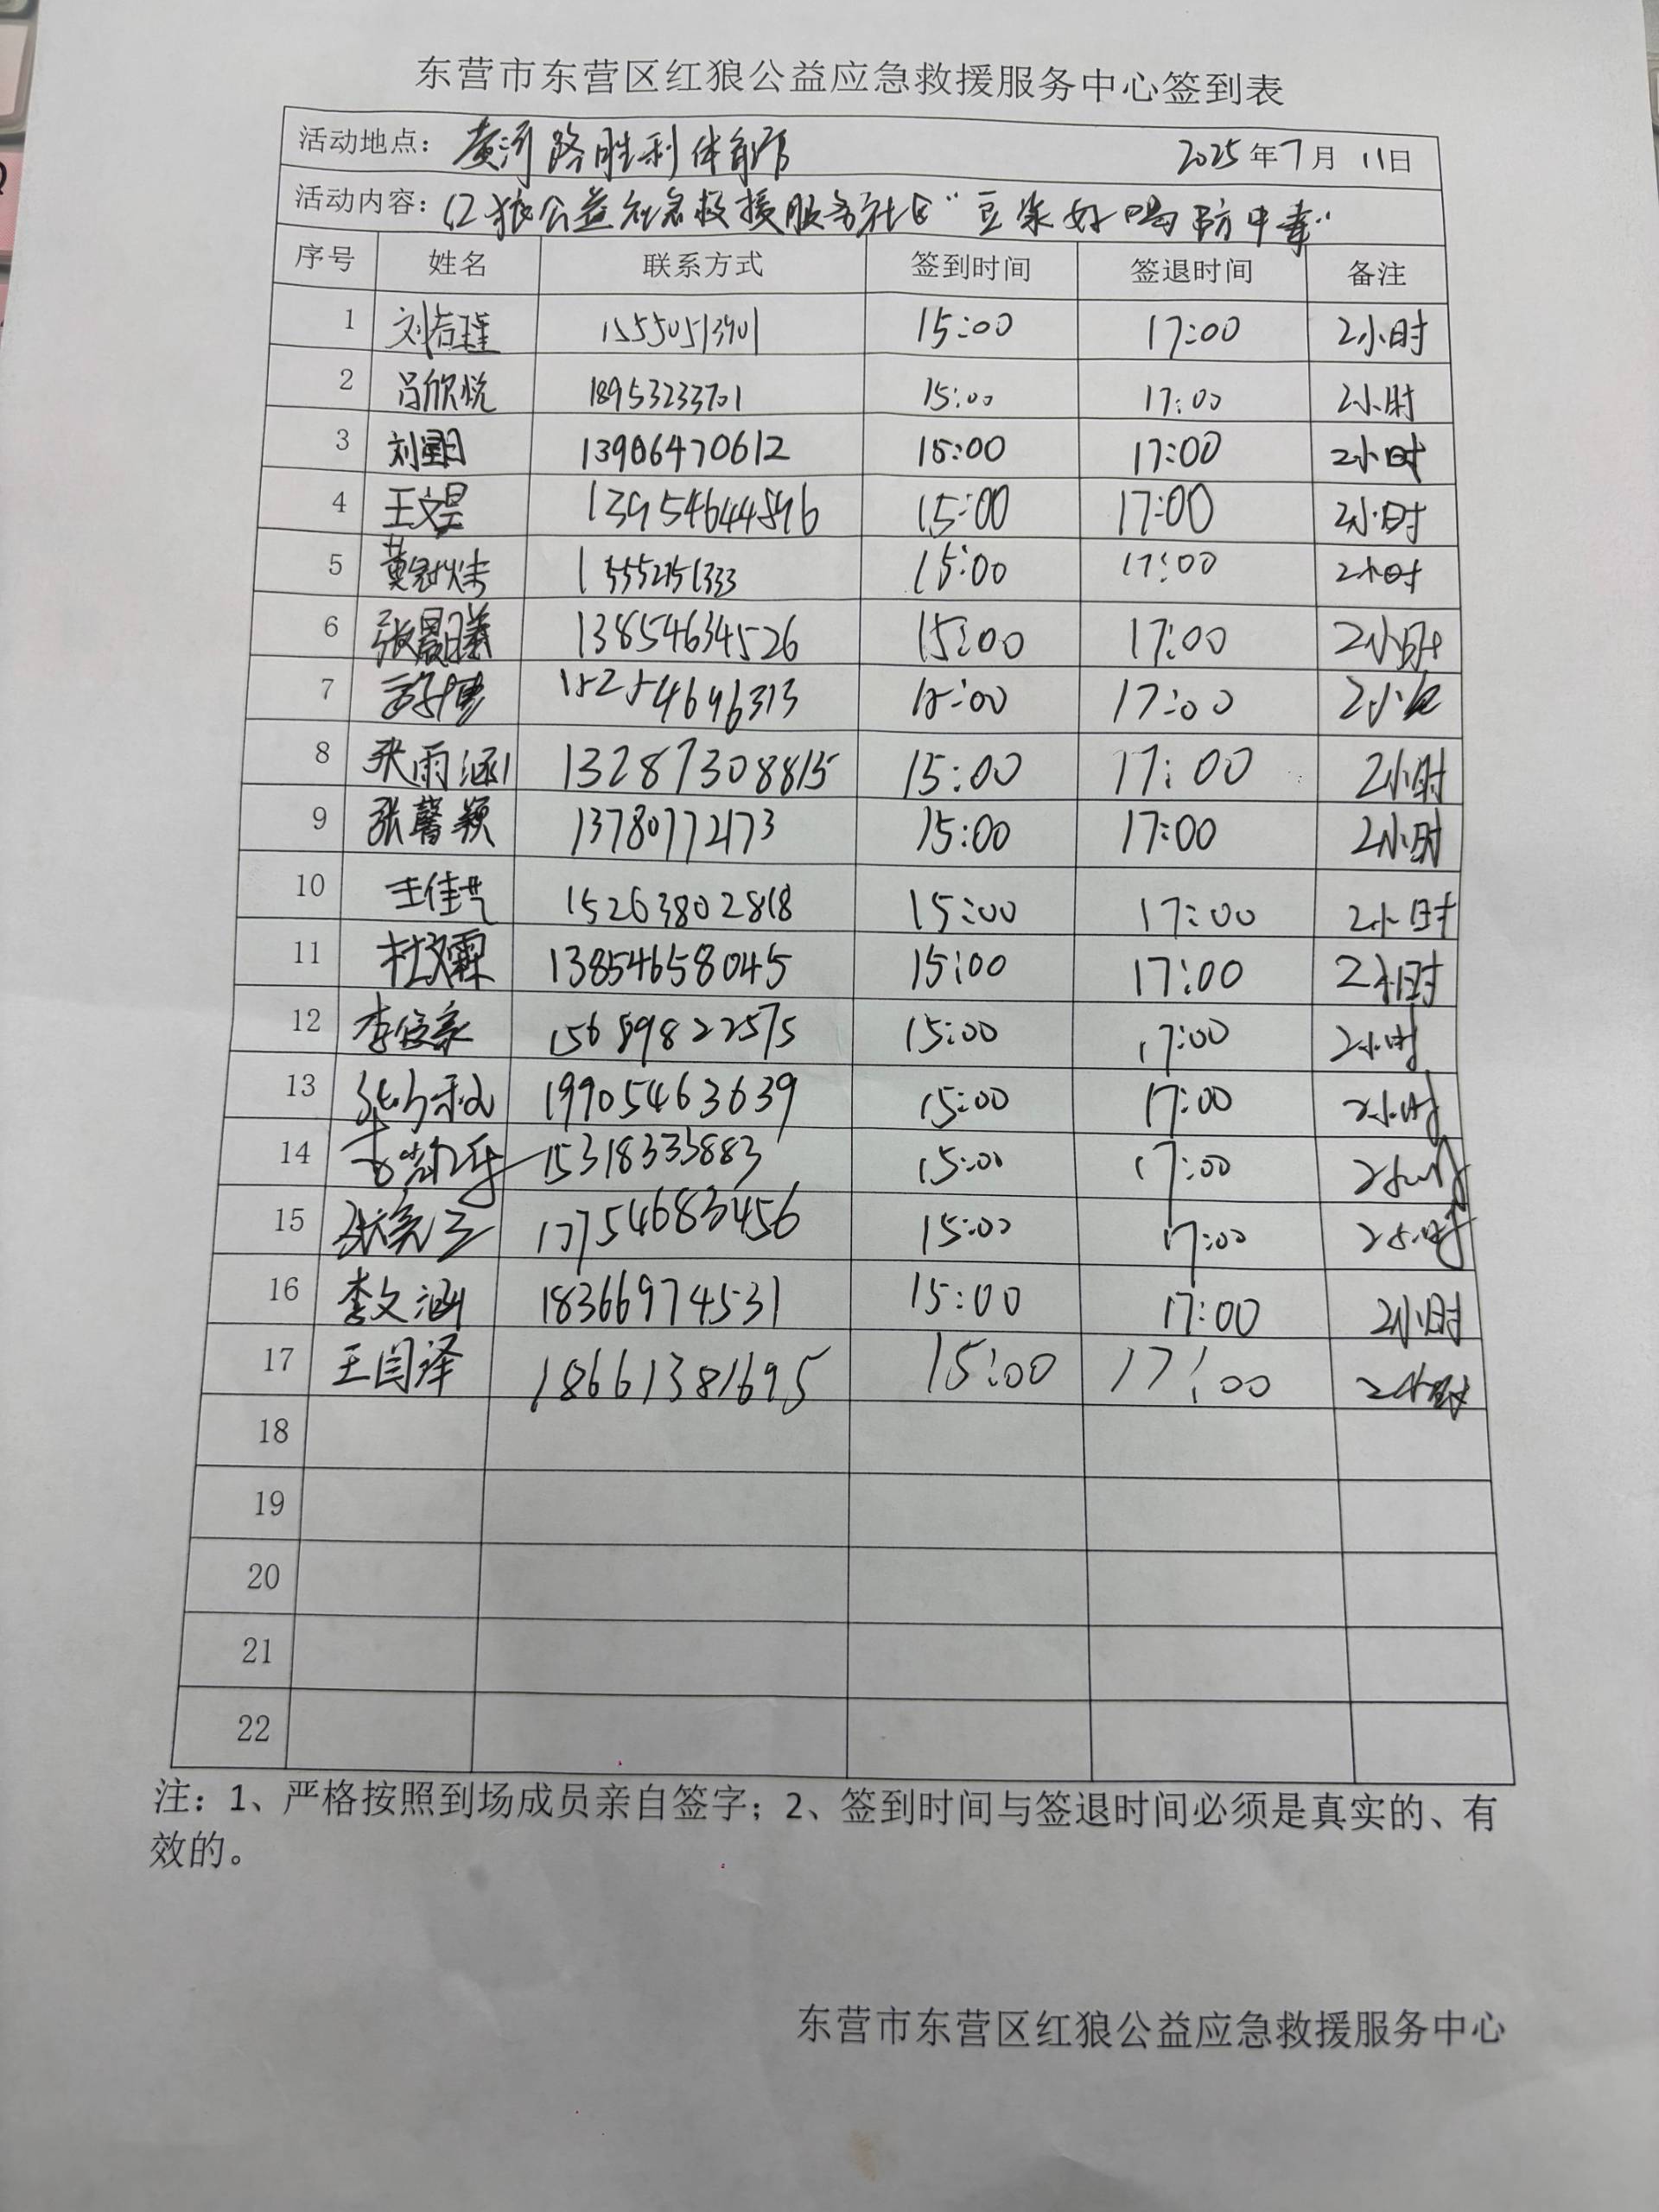 东营市东营区红狼公益应急救援服务中心签到表
活动地点：黄河路胜利体育馆 2025年7月11日
活动内容：红狼公益应急救援服务社区“豆浆好喝防中毒”
序号 姓名 联系方式 签到时间 签退时间 备注
1 刘若瑾 15550513901 15:00 17:00 2小时
2 吕欣悦 18953233701 15:00 17:00 2小时
3 13906470612 15:00 17:00 2小时
4 王文昊 13954644896 15:00 17:00 2小时
5 15:00 17:00 2小时
6 张晨曦 13854634526 15:00 17:00 2小时
7 15254696313 15:00 17:00 2小时
8 张雨涵 13287308815 15:00 17:00 2小时
9 张馨颖 13780772173 15:00 17:00 2小时
10 王佳艺 15263802818 15:00 17:00 2小时
11 杜文霖 13854658045 15:00 17:00 2小时
12 15689822575 15:00 17:00 2小时
13 19905463639 15:00 17:00 2小时
14 15318333883 15:00 17:00 2小时
15 17754683456 15:00 17:00 2小时
16 李文涵 18366974531 15:00 17:00 2小时
17 王闫泽 18661381695 15:00 17:00 2小时
18
19
20
21
22
注：1、严格按照到场成员亲自签字；2、签到时间与签退时间必须是真实的、有
效的。
东营市东营区红狼公益应急救援服务中心